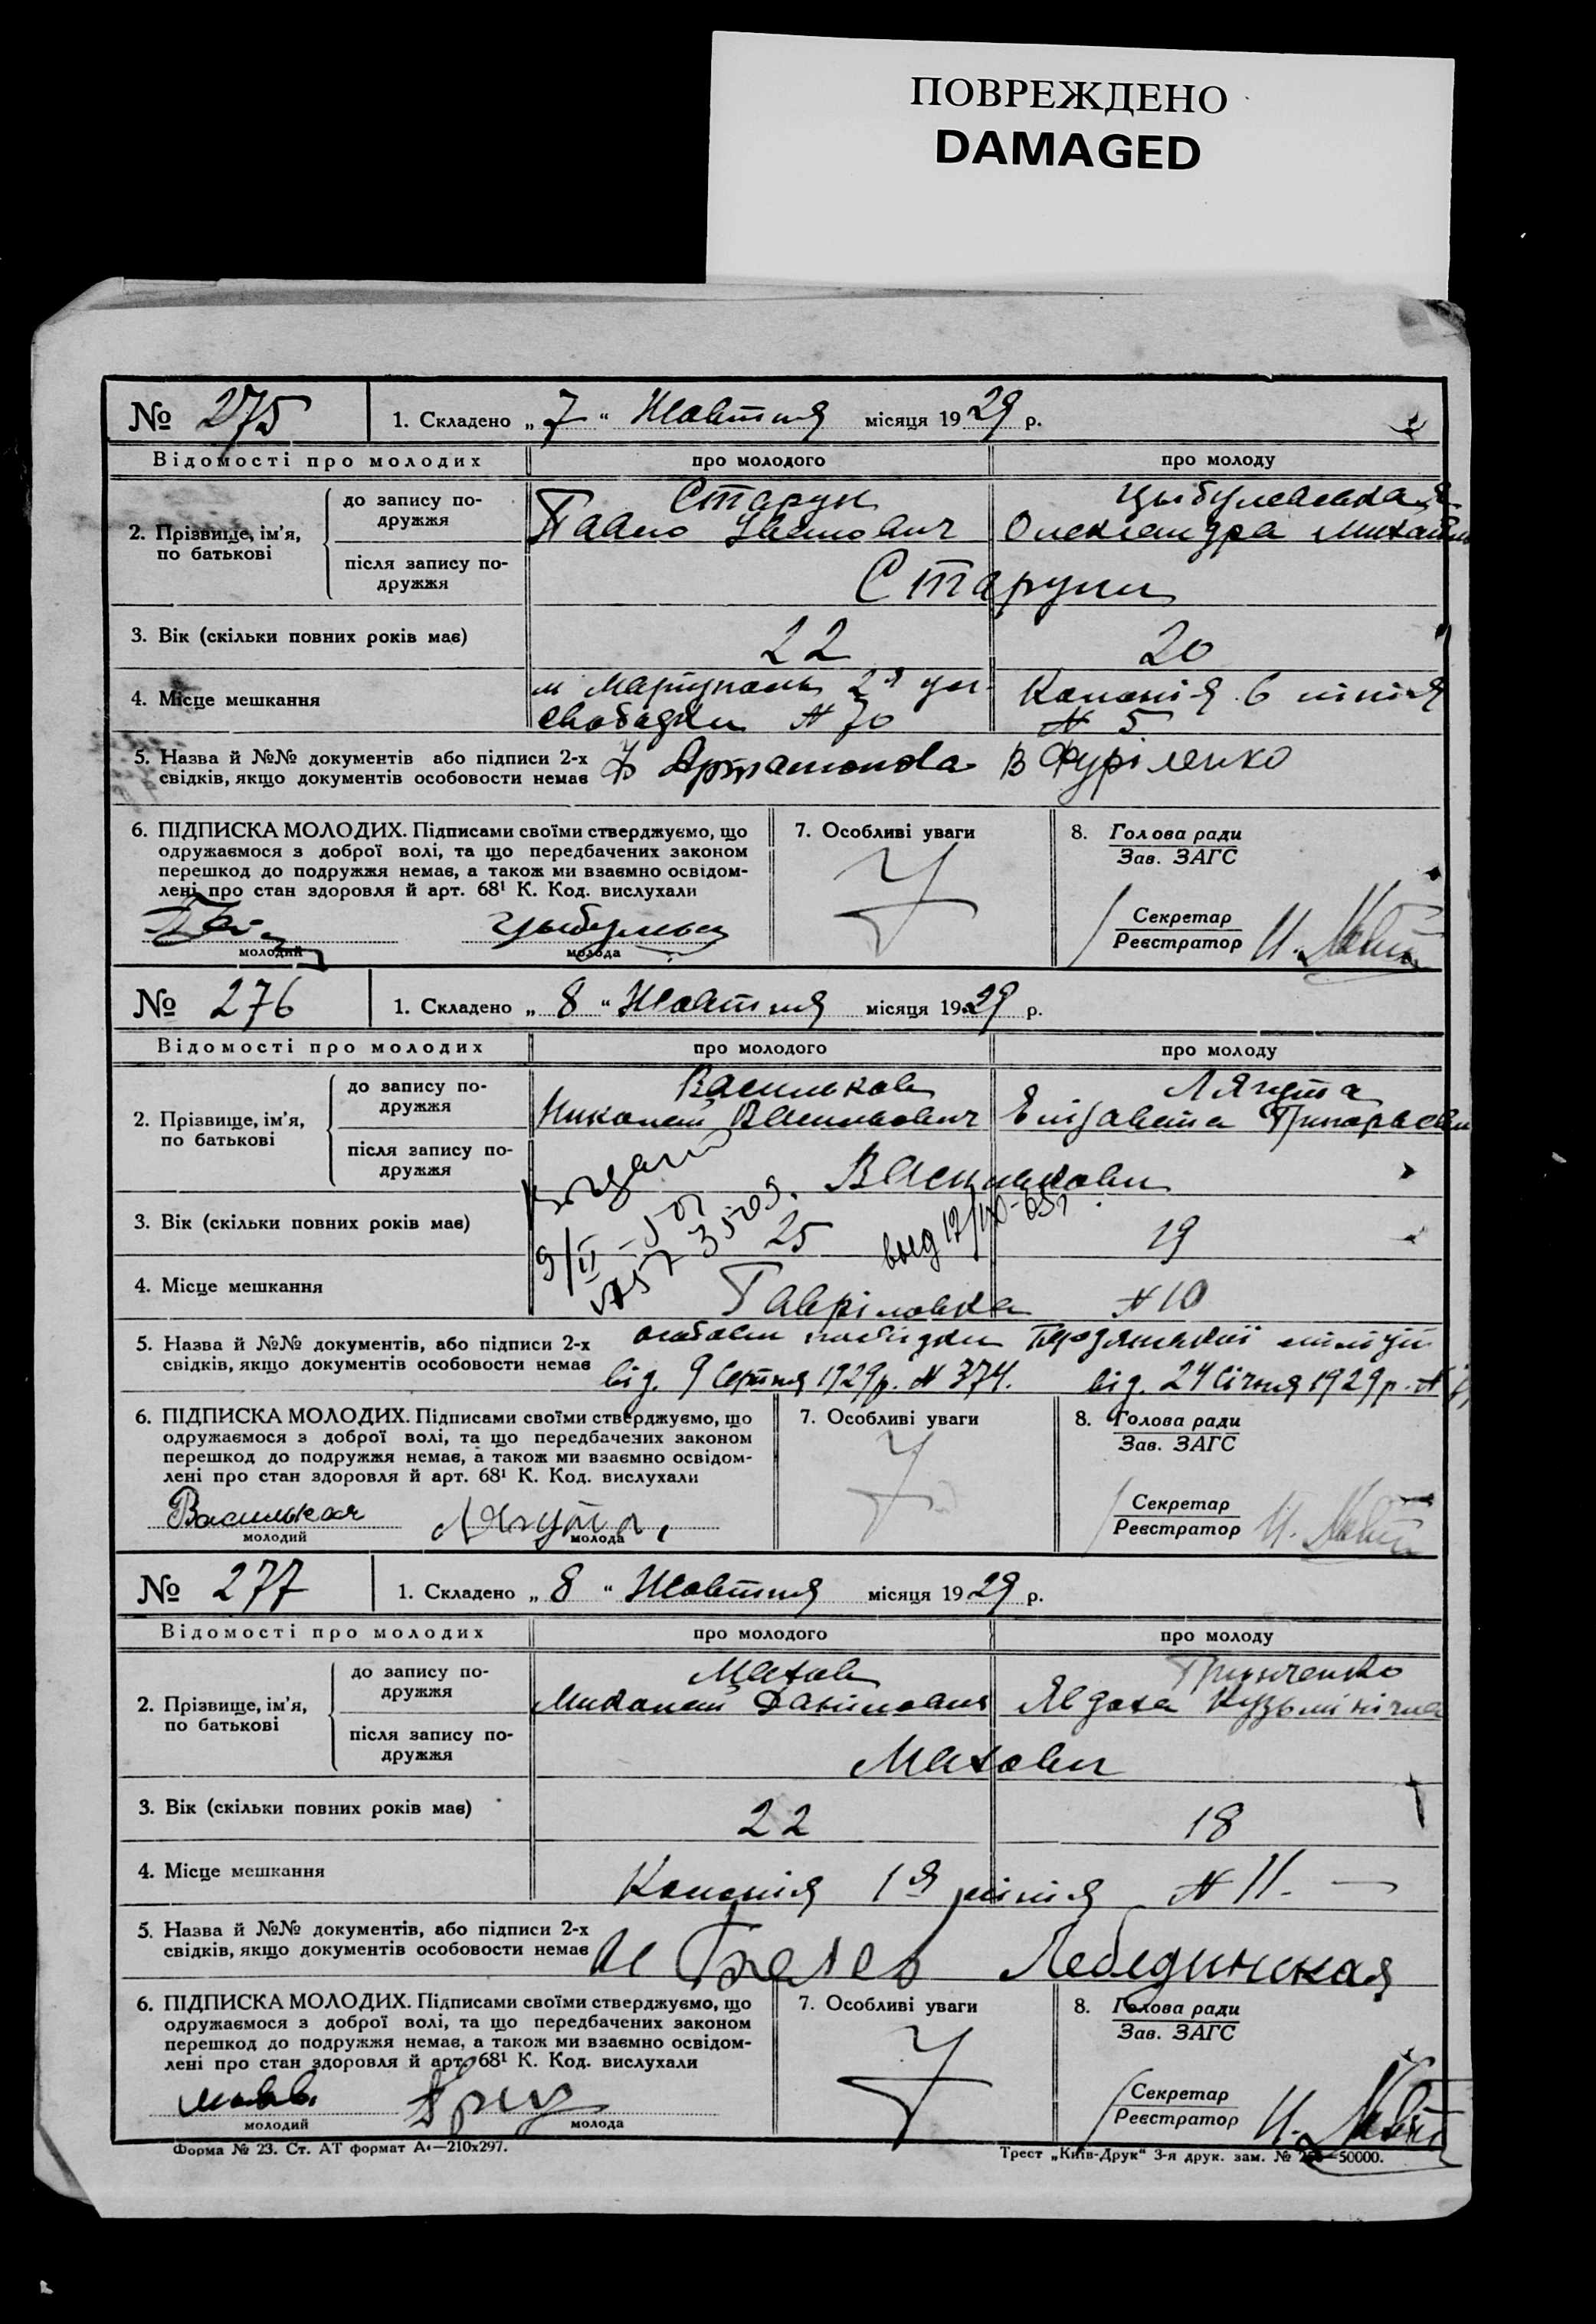 ПОВРЕЖДЕНО
DAMAGED
№ 275 1. Складено „ 7 “ Жовтня місяця 1929 р.
Відомості про молодих про молодого про молоду
2. Прізвище, ім’я, по батькові
до запису подружжя
Старун Цыбулевская
Павло Іванович Олександра Михайл
після запису подружжя
Старуни
3. Вік (скільки повних років має) 22 20
4. Місце мешкання
м Маріуполь 2я ул. Колонія 6 лінія
Свободи № 70 № 5
5. Назва й №№ документів або підписи 2-х
свідків, якщо документів особовости немає Артамонова В Фуріленко
6. ПІДПИСКА МОЛОДИХ. Підписами своїми стверджуємо, що
одружаємося з доброї волі, та що передбачених законом
перешкод до подружжя немає, а також ми взаємно освідом-
лені про стан здоровля й арт. 68¹ К. Код. вислухали
молодий молода
7. Особливі уваги
8. Голова ради
Зав. ЗАГС
Секретар
Реєстратор
№ 276 1. Складено „ 8 “ Жовтня місяця 1929 р.
Відомості про молодих про молодого про молоду
2. Прізвище, ім’я, по батькові
до запису подружжя
Васильков Лягута
Николай Васильович Елізавета Григорьевн
після запису подружжя
Василькови
3. Вік (скільки повних років має) 25 19
4. Місце мешкання Гавріловка № 10
5. Назва й №№ документів, або підписи 2-х
свідків, якщо документів особовости немає
від. 9 Серпня 1929р. № 374. від. 24 Січня 1929р. №
6. ПІДПИСКА МОЛОДИХ. Підписами своїми стверджуємо, що
одружаємося з доброї волі, та що передбачених законом
перешкод до подружжя немає, а також ми взаємно освідом-
лені про стан здоровля й арт. 68¹ К. Код. вислухали
Васильков Лягута
молодий молода
7. Особливі уваги
8. Голова ради
Зав. ЗАГС
Секретар
Реєстратор
№ 277 1. Складено „ 8 “ Жовтня місяця 1929 р.
Відомості про молодих про молодого про молоду
2. Прізвище, ім’я, по батькові
до запису подружжя
Махов Гринченко
Миколай Данілович Явдоха Кузьмінічна
після запису подружжя
Махови
3. Вік (скільки повних років має) 22 18
4. Місце мешкання Колонія 1я лінія № 11.
5. Назва й №№ документів, або підписи 2-х
свідків, якщо документів особовости немає Лебединская
6. ПІДПИСКА МОЛОДИХ. Підписами своїми стверджуємо, що
одружаємося з доброї волі, та що передбачених законом
перешкод до подружжя немає, а також ми взаємно освідом-
лені про стан здоровля й арт. 68¹ К. Код. вислухали
молодий молода
7. Особливі уваги
8. Голова ради
Зав. ЗАГС
Секретар
Реєстратор
Форма № 23. Ст. АТ формат А4—210x297.
Трест „Київ-Друк“ 3-я друк. зам. № 50000.